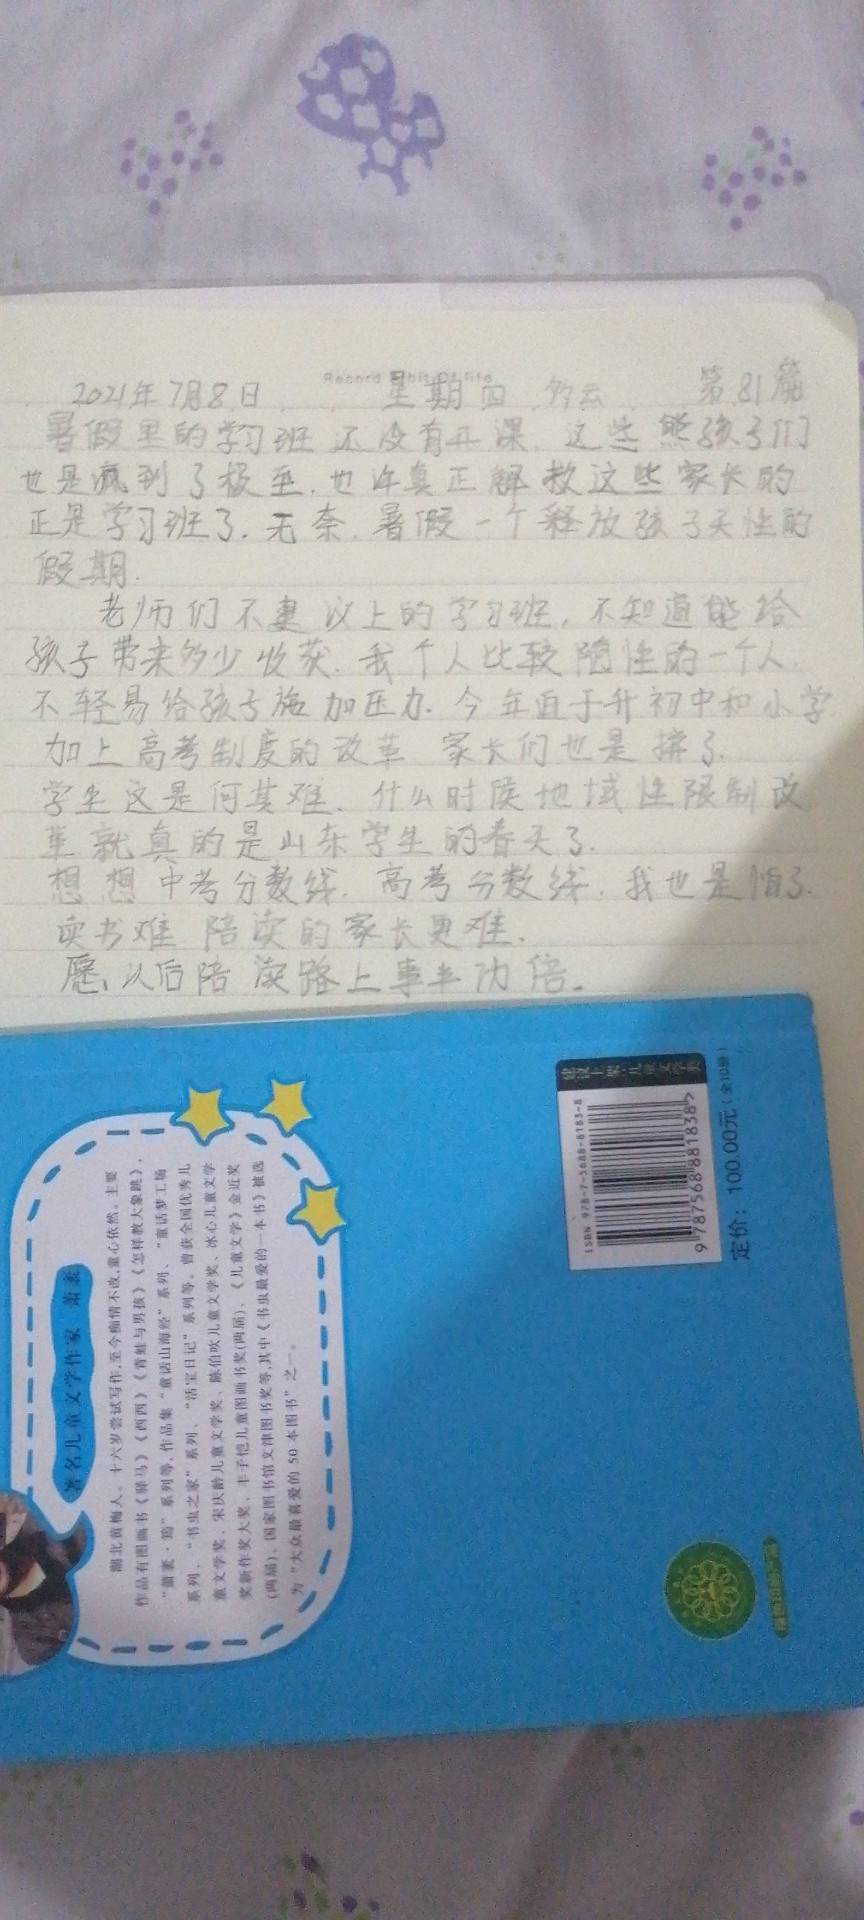 Record
2021年7月8日 星期四 多云 第81篇
暑假里的学习班还没有开课.这些熊孩子们
也是疯到了极至.也许真正解救这些家长的
正是学习班了.无奈.暑假一个释放孩子天性的
假期.
老师们不建议上的学习班,不知道能给
孩子带来多少收获.我个人比较随性的一个人.
不轻易给孩子施加压力.今年直于升初中和小学
加上高考制度的改革 家长们也是拼了.
学生这是何其难.什么时候地域性限制改
革就真的是山东学生的春天了.
想想中考分数线.高考分数线.我也是怕了.
读书难 陪读的家长更难.
愿以后陪读路上事半功倍。
著名儿童文学作家 萧袤
湖北黄梅人。十六岁尝试写作,至今痴情不改,童心依然。主要
作品有图画书《驿马》《西西》《青蛙与男孩》《怎样教大象跳》,
“萧袤·筠”系列等,作品集“童话山海经”系列、“童话梦工场
系列、“书虫之家”系列、“活宝日记”系列等。曾获全国优秀儿
童文学奖、宋庆龄儿童文学奖、陈伯吹儿童文学奖、冰心儿童文学
奖新作奖大奖、丰子恺儿童图画书奖(两届)、《儿童文学》金近奖
(两届)、国家图书馆文津图书奖等,其中《书虫最爱的一本书》被选
为“大众最喜爱的50本图书”之一。
建议上架:儿童文学类
ISBN 978-7-5688-8183-8
9 787568 881838>
定价：100.00元(全10册)
绿色印刷产品